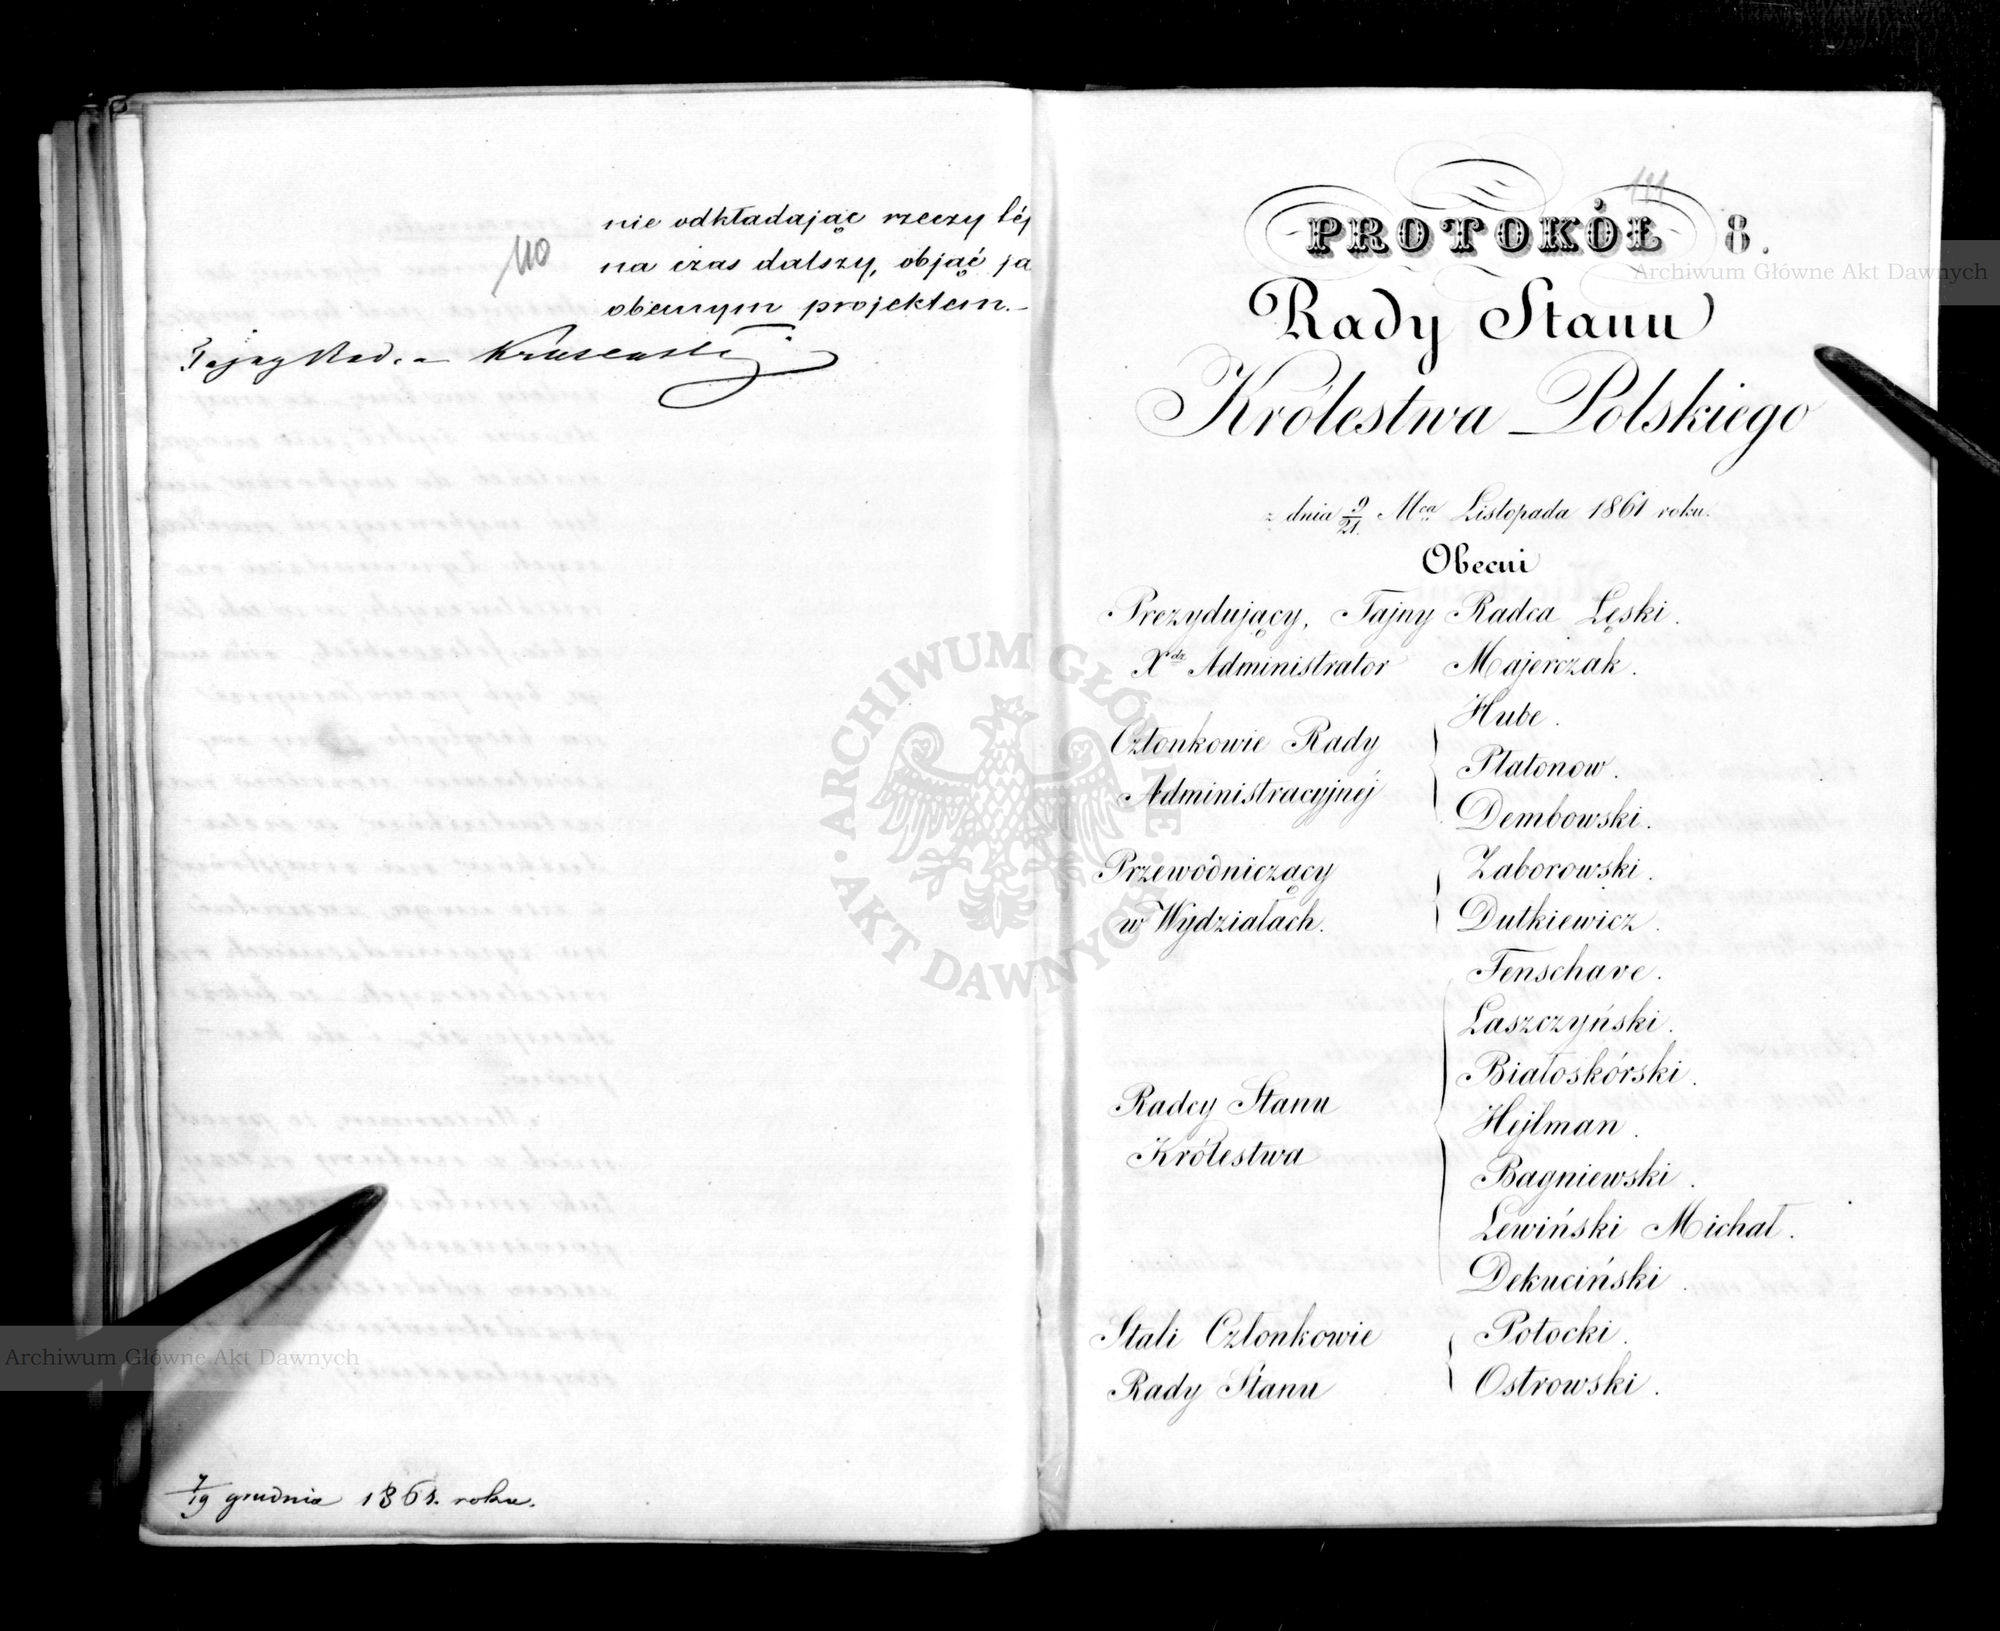 110
nie odkładając rzeczy téj
na czas dalszy, objąć ją
obecnym projektem.
Tajny Rad.
7/19 grudnia 1861. roku.
111
PROTOKÓŁ 8.
Rady Stanu
Królestwa Polskiego
z dnia 9/21. Mca Listopada 1861 roku.
Obecni
Prezydujący, Tajny Radca Łęski.
Xdz Administrator Majerczak.
Członkowie Rady
Administracyjnéj
Hube.
Płatonow.
Dembowski.
Przewodniczący
w Wydziałach.
Zaborowski.
Dutkiewicz.
Radcy Stanu
Królestwa
Fenschave.
Łaszczyński.
Białoskórski.
Hejlman.
Bagniewski.
Lewiński Michał.
Dekuciński.
Stali Członkowie
Rady Stanu
Potocki.
Ostrowski.
Archiwum Główne Akt Dawnych
Archiwum Główne Akt Dawnych
ARCHIWUM GŁÓWNE AKT DAWNYCH